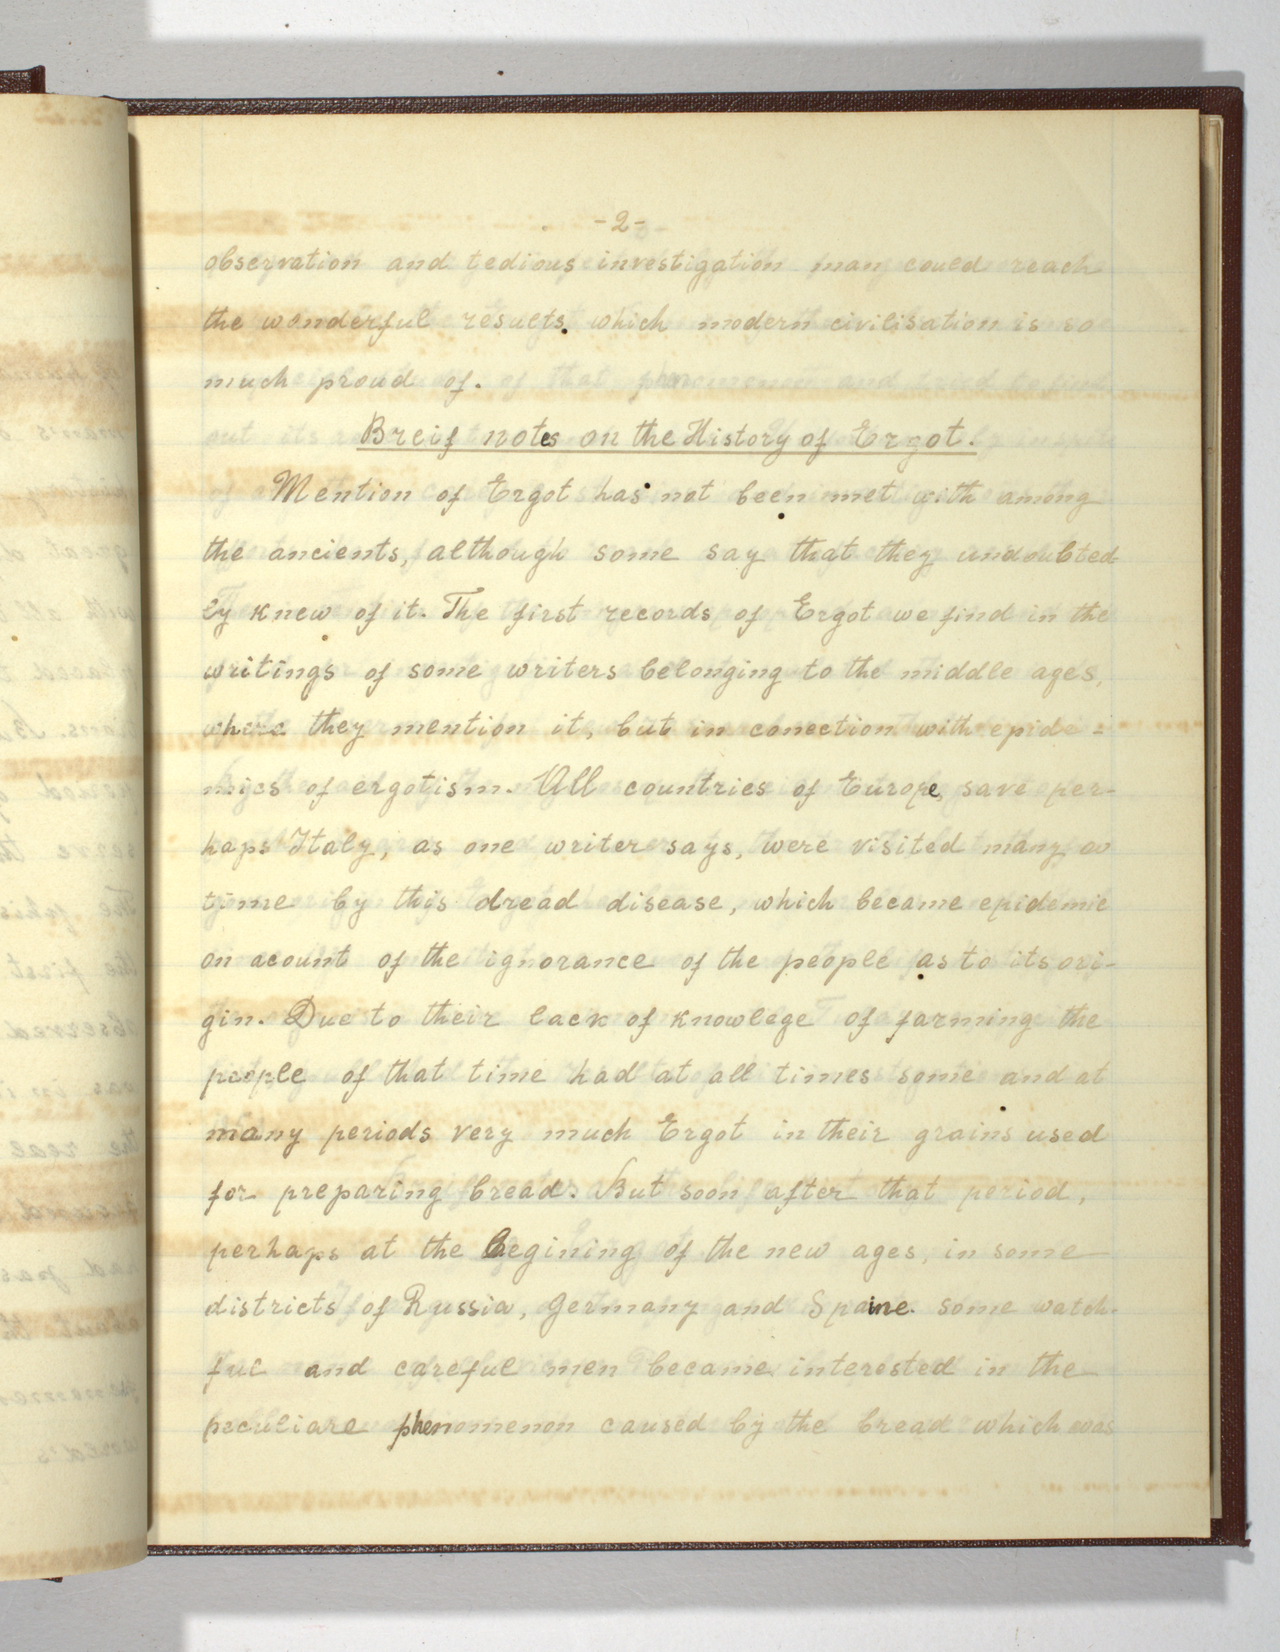 -2-
observation and tedious investigation man could reach
the wonderful results which modern civilisation is so
much proud of.
Breif notes on the History of Ergot.
Mention of Ergot has not been met with among
the ancients, although some say that they undoubted
ly knew of it. The first records of Ergot we find in the
writings of some writers belonging to the middle ages,
where they mention it, but in conection with epide=
mics of ergotism. All countries of Europe, save per-
haps Italy, as one writer says, were visited many a
time by this dread disease, which became epidemic
on acount of the ignorance of the people as to its ori-
gin. Due to their lack of knowlege of farming the
people of that time had at all times some and at
many periods very much Ergot in their grains used
for preparing bread. But soon after that period,
perhaps at the begining of the new ages, in some
districts of Russia, Germany and Spaine some watch-
ful and careful men became interested in the
peculiare phenomenon caused by the bread which was